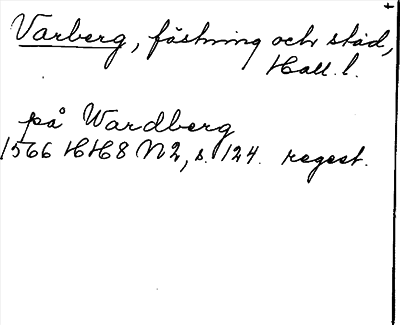 Varberg, fästning och stad,
Hall. l.
på Wardberg
1566 HH8 N2, s. 124. regest.